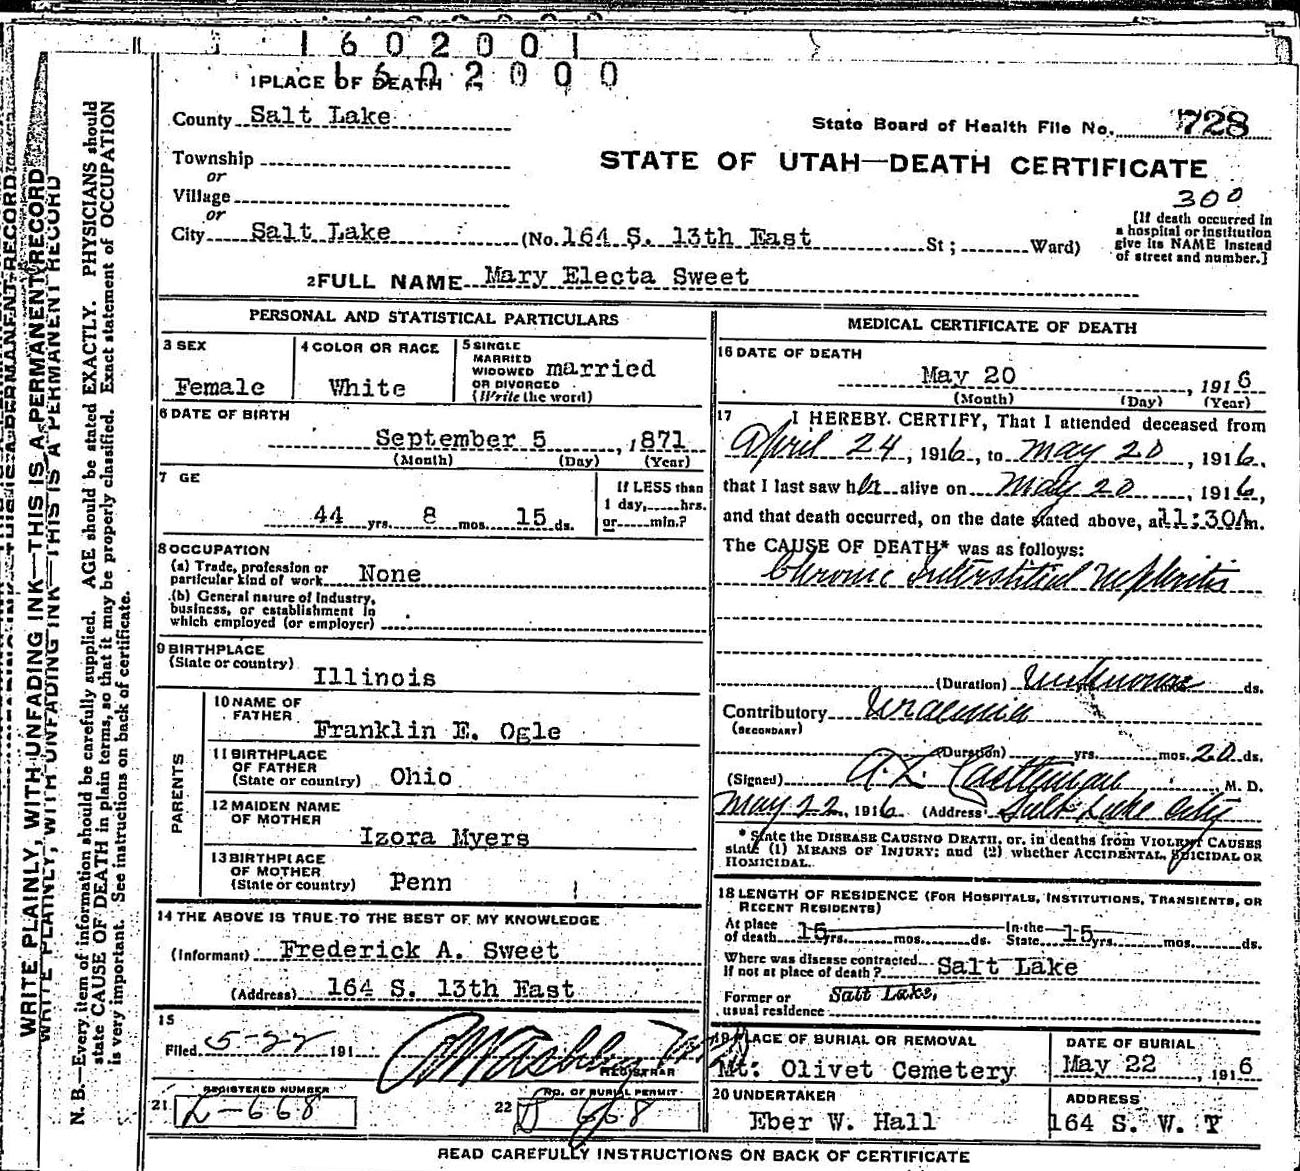 1602001
1602000
1 PLACE OF DEATH
County Salt Lake
State Board of Health File No. 728
Township
or
STATE OF UTAH—DEATH CERTIFICATE
Village
or
300
[If death occurred in
a hospital or institution
give its NAME instead
of street and number.]
City Salt Lake (No. 164 S. 13th East St; Ward)
2 FULL NAME Mary Electa Sweet
PERSONAL AND STATISTICAL PARTICULARS
3 SEX
Female
4 COLOR OR RACE
White
5 SINGLE
MARRIED
WIDOWED
OR DIVORCED
(Write the word)
married
6 DATE OF BIRTH
September 5, 1871
(Month) (Day) (Year)
7 GE
44 yrs. 8 mos. 15 ds.
If LESS than
1 day, hrs.
or min.?
8 OCCUPATION
(a) Trade, profession or
particular kind of work None
(b) General nature of industry,
business, or establishment in
which employed (or employer)
9 BIRTHPLACE
(State or country)
Illinois
PARENTS
10 NAME OF
FATHER
Franklin E. Ogle
11 BIRTHPLACE
OF FATHER
(State or country) Ohio
12 MAIDEN NAME
OF MOTHER
Izora Myers
13 BIRTHPLACE
OF MOTHER
(State or country) Penn
14 THE ABOVE IS TRUE TO THE BEST OF MY KNOWLEDGE
(Informant) Frederick A. Sweet
(Address) 164 S. 13th East
15
Filed 5-22 191
REGISTRAR
REGISTERED NUMBER
21 L-668
NO. OF BURIAL PERMIT
22 668
MEDICAL CERTIFICATE OF DEATH
16 DATE OF DEATH
May 20, 1916
(Month) (Day) (Year)
17 I HEREBY CERTIFY, That I attended deceased from
April 24, 1916, to May 20, 1916,
that I last saw her alive on May 20, 1916,
and that death occurred, on the date stated above, at 11:30A m.
The CAUSE OF DEATH* was as follows:
Chronic Interstitial Nephritis
(Duration) Unknown ds.
Contributory Uraemia
(SECONDARY)
(Duration) yrs. mos. 20 ds.
(Signed) A. L. M. D.
May 22, 1916 (Address) Salt Lake City
* State the DISEASE CAUSING DEATH, or, in deaths from VIOLENT CAUSES
state (1) MEANS OF INJURY; and (2) whether ACCIDENTAL, SUICIDAL OR
HOMICIDAL.
18 LENGTH OF RESIDENCE (FOR HOSPITALS, INSTITUTIONS, TRANSIENTS, OR
RECENT RESIDENTS)
At place
of death 15 yrs. mos. ds.
In the
State 15 yrs. mos. ds.
Where was disease contracted
if not at place of death? Salt Lake
Former or
usual residence Salt Lake,
19 PLACE OF BURIAL OR REMOVAL
Mt. Olivet Cemetery
DATE OF BURIAL
May 22, 1916
20 UNDERTAKER
Eber W. Hall
ADDRESS
164 S. W. T
READ CAREFULLY INSTRUCTIONS ON BACK OF CERTIFICATE
WRITE PLAINLY, WITH UNFADING INK—THIS IS A PERMANENT RECORD
WRITE PLAINLY, WITH UNFADING INK—THIS IS A PERMANENT RECORD
N. B.—Every item of information should be carefully supplied. AGE should be stated EXACTLY. PHYSICIANS should
state CAUSE OF DEATH in plain terms, so that it may be properly classified. Exact statement of OCCUPATION
is very important. See instructions on back of certificate.